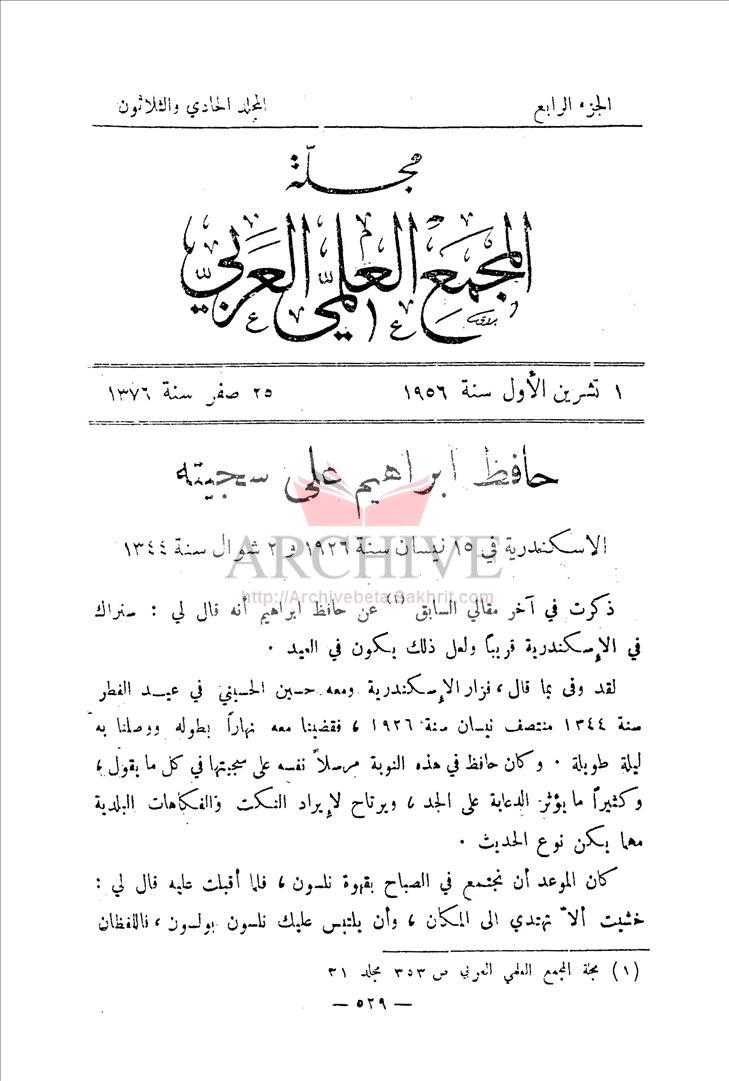 الجزء الرابع المجلد الحادي والثلاثون
مجلة
المجمع العلمي العربي
١ تشرين الأول سنة ١٩٥٦ ٢٥ صفر سنة ١٣٧٦
حافظ ابراهيم على سجيته
ARCHIVE
الاسكندرية في ١٥ نيسان سنة ١٩٢٦ و ٢ شوال سنة ١٣٤٤
http://Archivebeta.Sakhrit.com
ذكرت في آخر مقالي السابق (١) عن حافظ ابراهيم أنه قال لي : سنراك
في الإسكندرية قريباً ولعل ذلك يكون في العيد .
لقد وفى بما قال ، فزار الإسكندرية ومعه حسين الحسيني في عيد الفطر
سنة ١٣٤٤ منتصف نيسان سنة ١٩٢٦ ، فقضينا معه نهاراً بطوله ووصلنا به
ليلة طويلة . وكان حافظ في هذه النوبة مرسلاً نفسه على سجيتها في كل ما يقول ،
وكثيراً ما يؤثر الدعابة على الجد ، ويرتاح لإيراد النكت والفكاهات البلدية
مهما يكن نوع الحديث .
كان الموعد أن نجتمع في الصباح بقهوة نلسون ، فلما أقبلت عليه قال لي :
خشيت ألاّ تهتدي الى المكان ، وأن يلتبس عليك نلسون بولسون ، فاللفظان
(١) مجلة المجمع العلمي العربي ص ٣٥٣ مجلد ٣١
— ٥٢٩ —